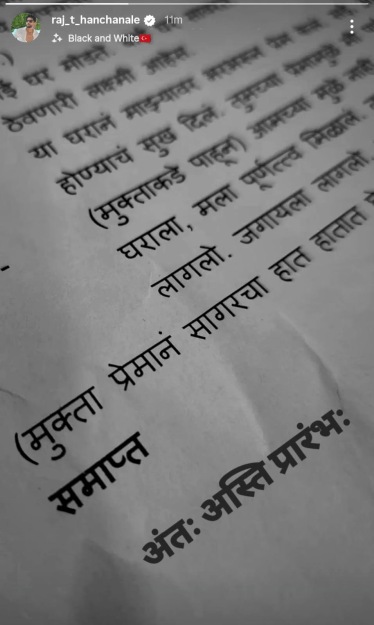 raj_t_hanchanale 11m
Black and White
घर मोडता
ठेवणारी लक्ष्मी आहेस
या घरानं माझ्यावर भरभरून प्रेम
होण्याचं सुख दिलं. तुमच्या प्रेमामुळे मी
(मुक्ताकडे पाहून) आमच्या मुळे नाही
घराला, मला पूर्णत्व मिळालं.
लागलो. जगायला लागलो.
(मुक्ता प्रेमानं सागरचा हात हातात
समाप्त
अंतः अस्ति प्रारंभः